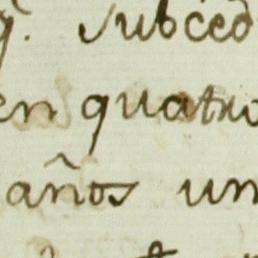 q. Subced
en quatro
años un